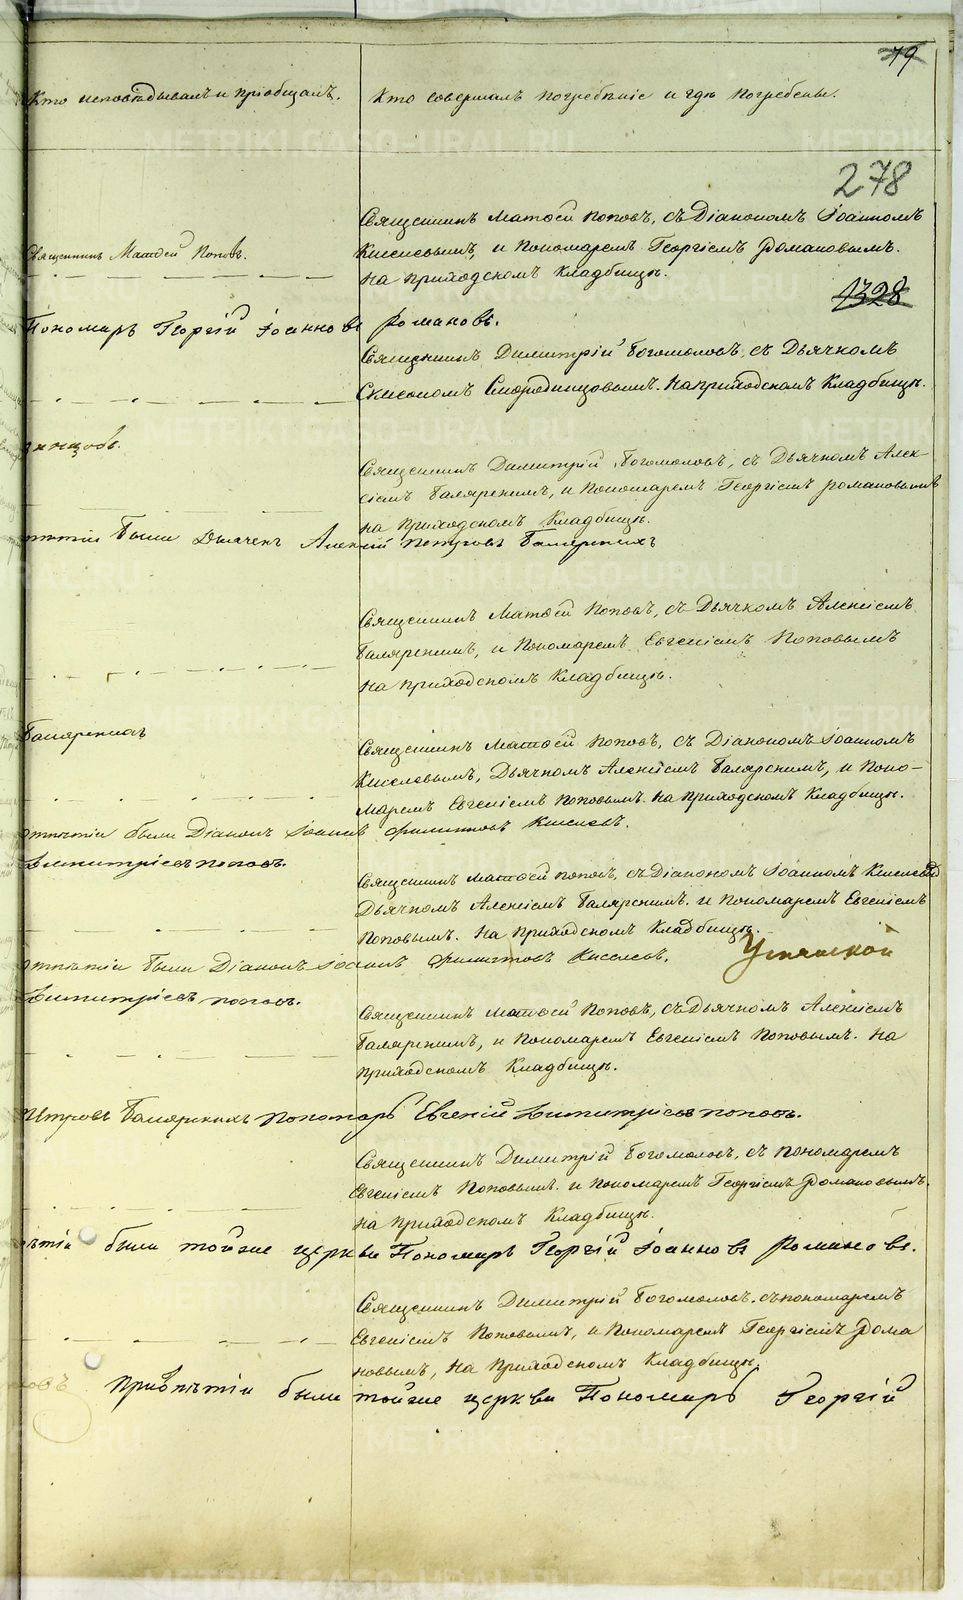 79
Кто исповѣдывалъ и пріобщалъ.
Кто совершалъ погребѣніе и гдѣ погребены.
278
Священникъ Матѳей Поповъ, съ Діакономъ Іоанномъ
Киселевымъ, и Пономаремъ Георгіемъ Романовымъ.
Священникъ Матѳей Поповъ.
На приходскомъ Кладбищѣ.
1328
Пономарь Георгій Іоанновъ Романовъ.
Священникъ Димитрій Богомоловъ, съ Дьячкомъ
Смородинцовымъ. На приходскомъ Кладбищѣ.
нцовъ.
Священникъ Димитрій Богомоловъ, съ Дьячкомъ Алек-
сіемъ Баляркинымъ, и Пономаремъ Георгіемъ Романовымъ
на приходскомъ Кладбищѣ.
пѣтіи были Дьячекъ Алексій Петровъ
Священникъ Матѳей Поповъ, съ Дьячкомъ Алексіемъ
и Пономаремъ Евгеніемъ Поповымъ
на приходскомъ Кладбищѣ.
Священникъ Матѳей Поповъ, съ Діакономъ Іоанномъ
Киселевымъ, Дьячкомъ Алексіемъ и Поно-
маремъ Евгеніемъ Поповымъ. на приходскомъ Кладбищѣ.
отпѣтіи были Діаконъ Іоаннъ Филиповъ Киселевъ.
Димитріевъ Поповъ.
Священникъ Матѳей Поповъ, съ Діакономъ Іоанномъ
Дьячкомъ Алексіемъ и Пономаремъ Евгеніемъ
Поповымъ. На приходскомъ Кладбищѣ.
отпѣтіи были Діаконъ Іоаннъ Филиповъ Киселевъ.
Димитріевъ Поповъ.
Священникъ Матѳей Поповъ, съ Дьячкомъ Алексіемъ
и Пономаремъ Евгеніемъ Поповымъ. На
приходскомъ Кладбищѣ.
Петровъ Пономарь Евгеній Димитріевъ Поповъ.
Священникъ Димитрій Богомоловъ, съ Пономаремъ
Евгеніемъ Поповымъ. и Пономаремъ Георгіемъ Романовымъ.
на приходскомъ Кладбищѣ.
пѣтіи были тойже церкви Пономарь Георгій Іоанновъ Романовъ.
Священникъ Димитрій Богомоловъ, съ Пономаремъ
Евгеніемъ Поповымъ, и Пономаремъ Георгіемъ Рома
новымъ, на приходскомъ Кладбищѣ.
овъ При отпѣтіи были тойже церкви Пономарь Георгій